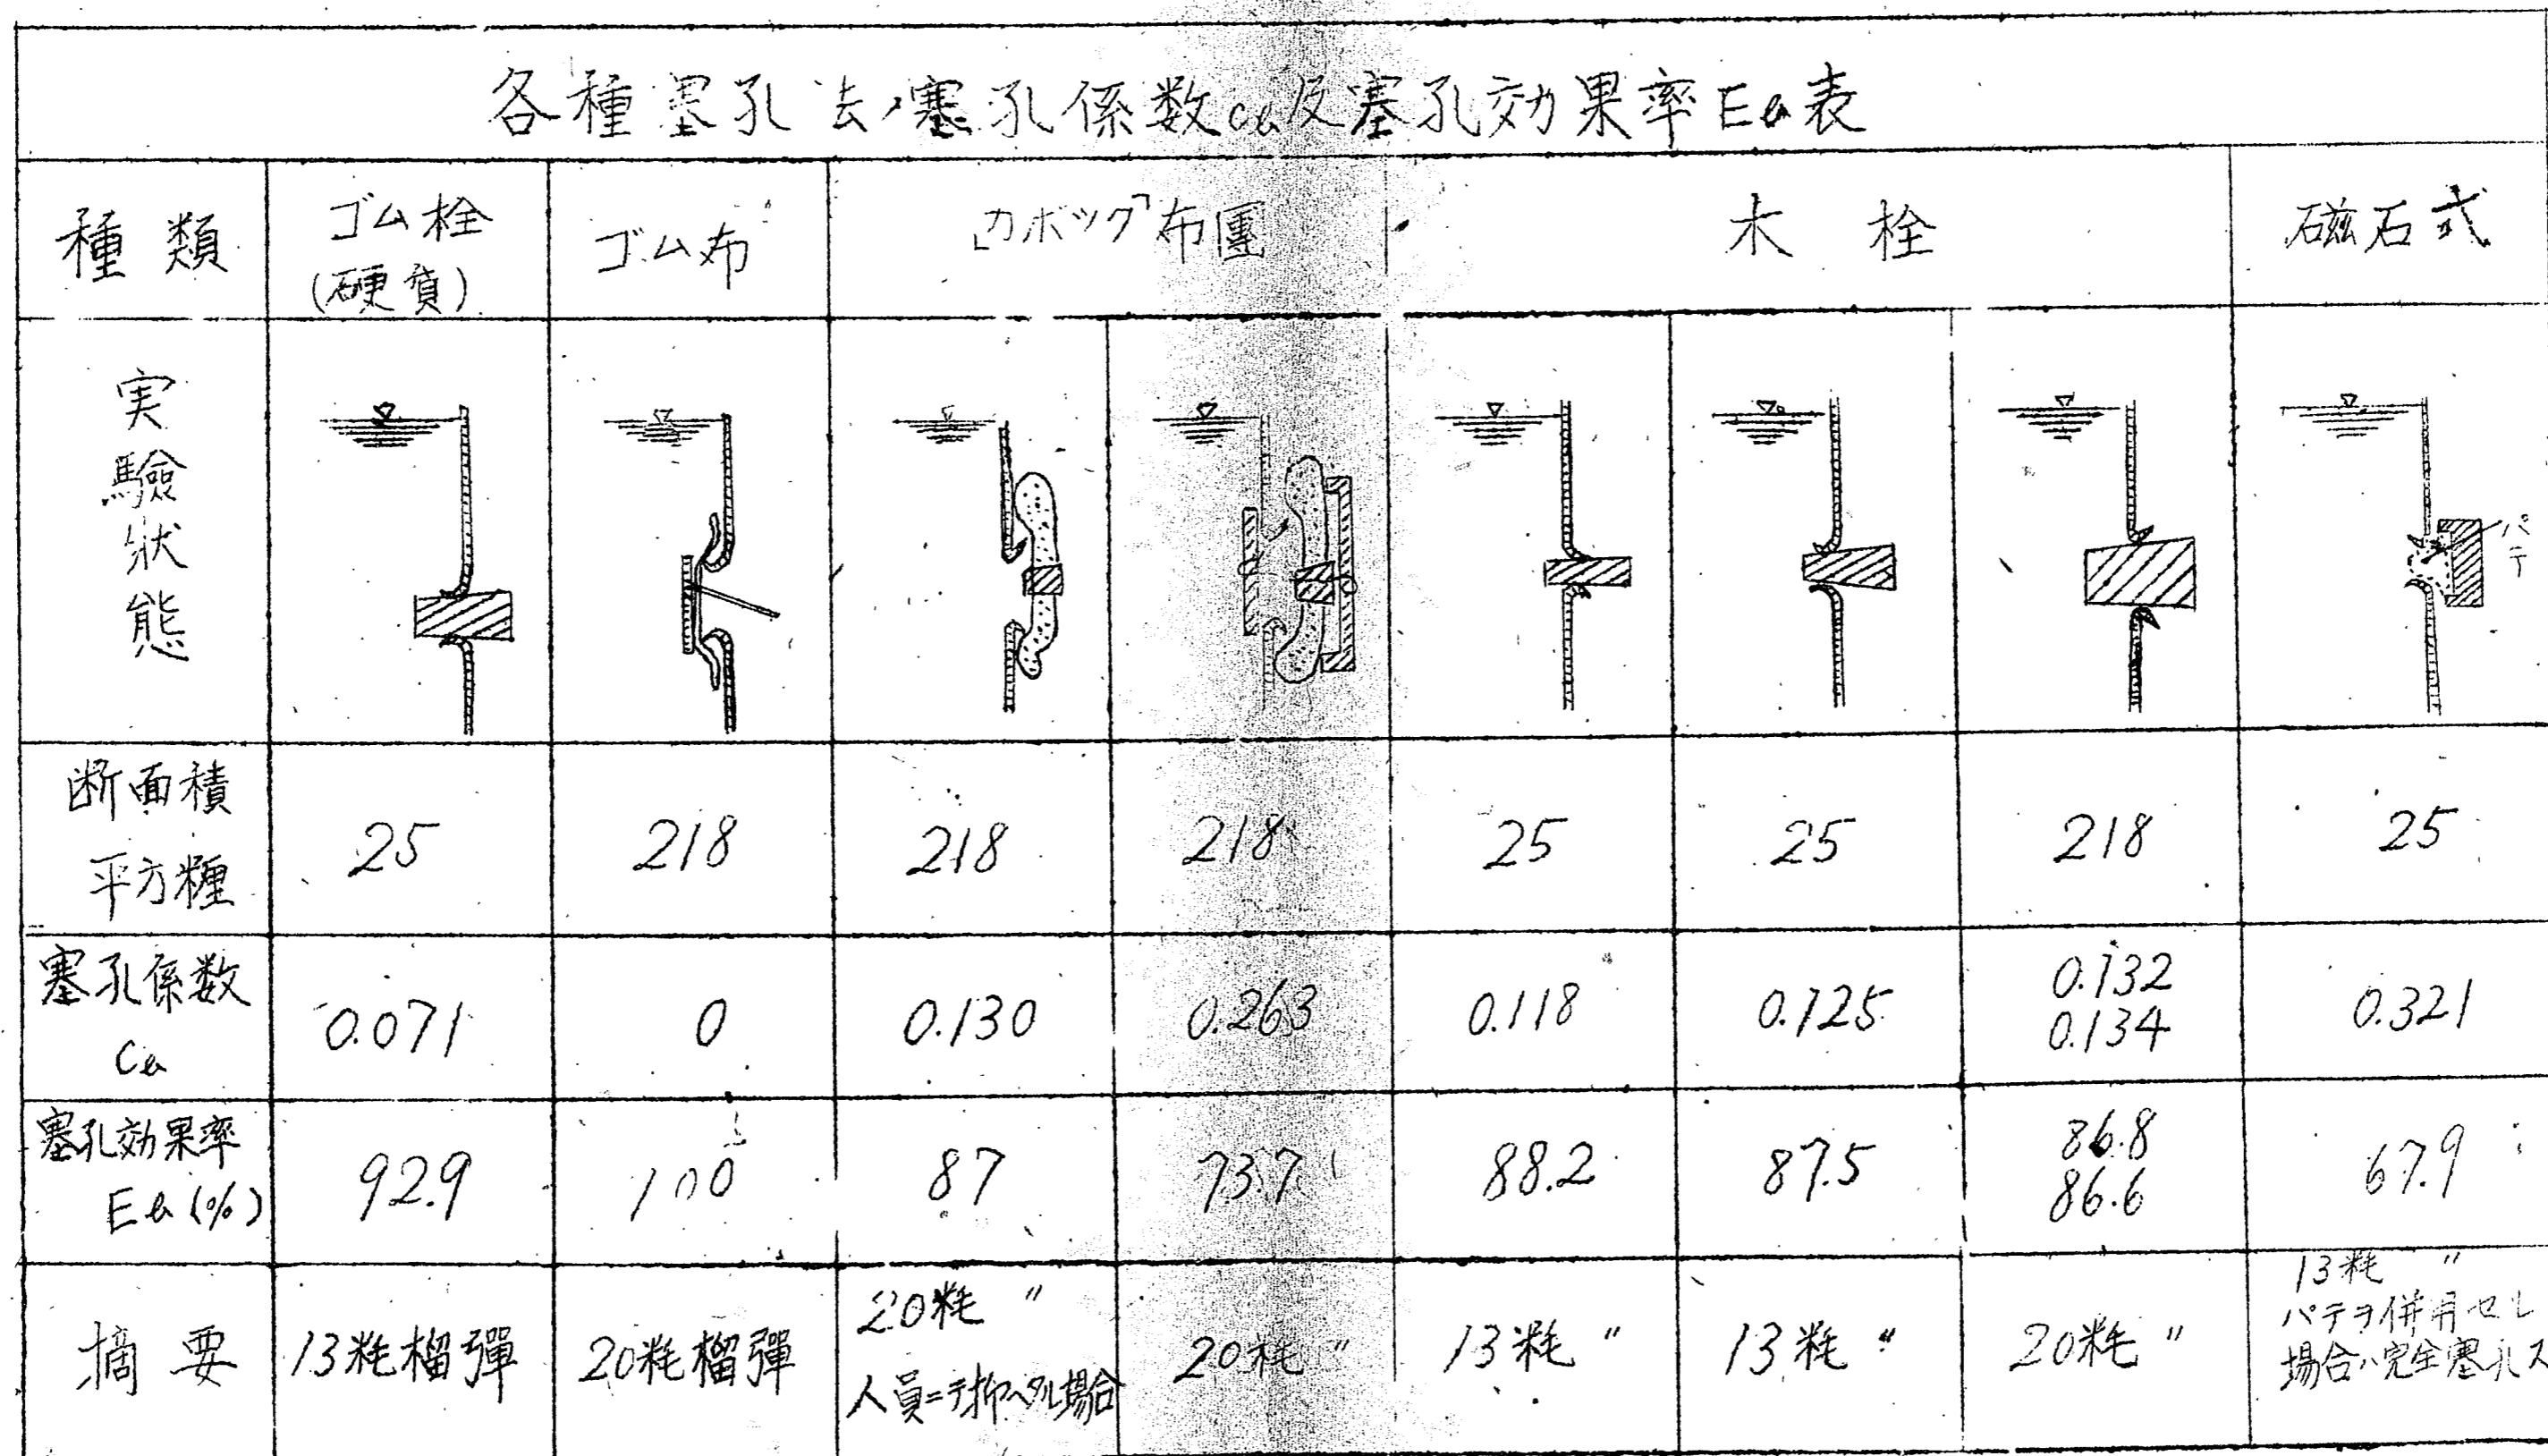 各種塞孔法ノ塞孔係数Ca及塞孔効果率Ea表
種類 ゴム栓(硬質) ゴム布 「カボック」布團 木栓 磁石式
実驗狀態
パテ
断面積平方糎 25 218 218 218 25 25 218 25
塞孔係数Ca 0.071 0 0.130 0.263 0.118 0.125 0.132 0.134 0.321
塞孔効果率Ea(%) 92.9 100 87 73.7 88.2 87.5 86.8 86.6 67.9
摘要 13粍榴彈 20粍榴彈 20粍〃 人員ニテ抑ヘタル場合 20粍〃 13粍〃 13粍〃 20粍〃 13粍〃 パテヲ併用セレ場合ハ完全塞孔ス